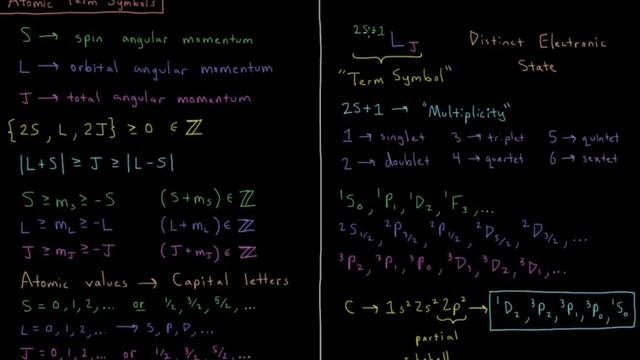 Atomic Term Symbols
S → spin angular momentum
L → orbital angular momentum
J → total angular momentum
{2S, L, 2J} ≥ 0 ∈ ℤ
|L+S| ≥ J ≥ |L-S|
S ≥ mₛ ≥ -S (S+mₛ) ∈ ℤ
L ≥ m_L ≥ -L (L+m_L) ∈ ℤ
J ≥ m_J ≥ -J (J+m_J) ∈ ℤ
Atomic values → Capital letters
S = 0, 1, 2, ... or 1/2, 3/2, 5/2, ...
L = 0, 1, 2, ... → S, P, D, ...
J = 0, 1, 2, ... or 1/2, 3/2,
²ˢ⁺¹L_J Distinct Electronic
State
"Term Symbol"
2S+1 → "Multiplicity"
1 → singlet 3 → triplet 5 → quintet
2 → doublet 4 → quartet 6 → sextet
¹S₀, ¹P₁, ¹D₂, ¹F₃, ...
²S₁/₂, ²P₃/₂, ²P₁/₂, ²D₅/₂, ²D₃/₂, ...
³P₂, ³P₁, ³P₀, ³D₃, ³D₂, ³D₁, ...
C → 1s²2s²2p² → ¹D₂, ³P₂, ³P₁, ³P₀, ¹S₀
partial